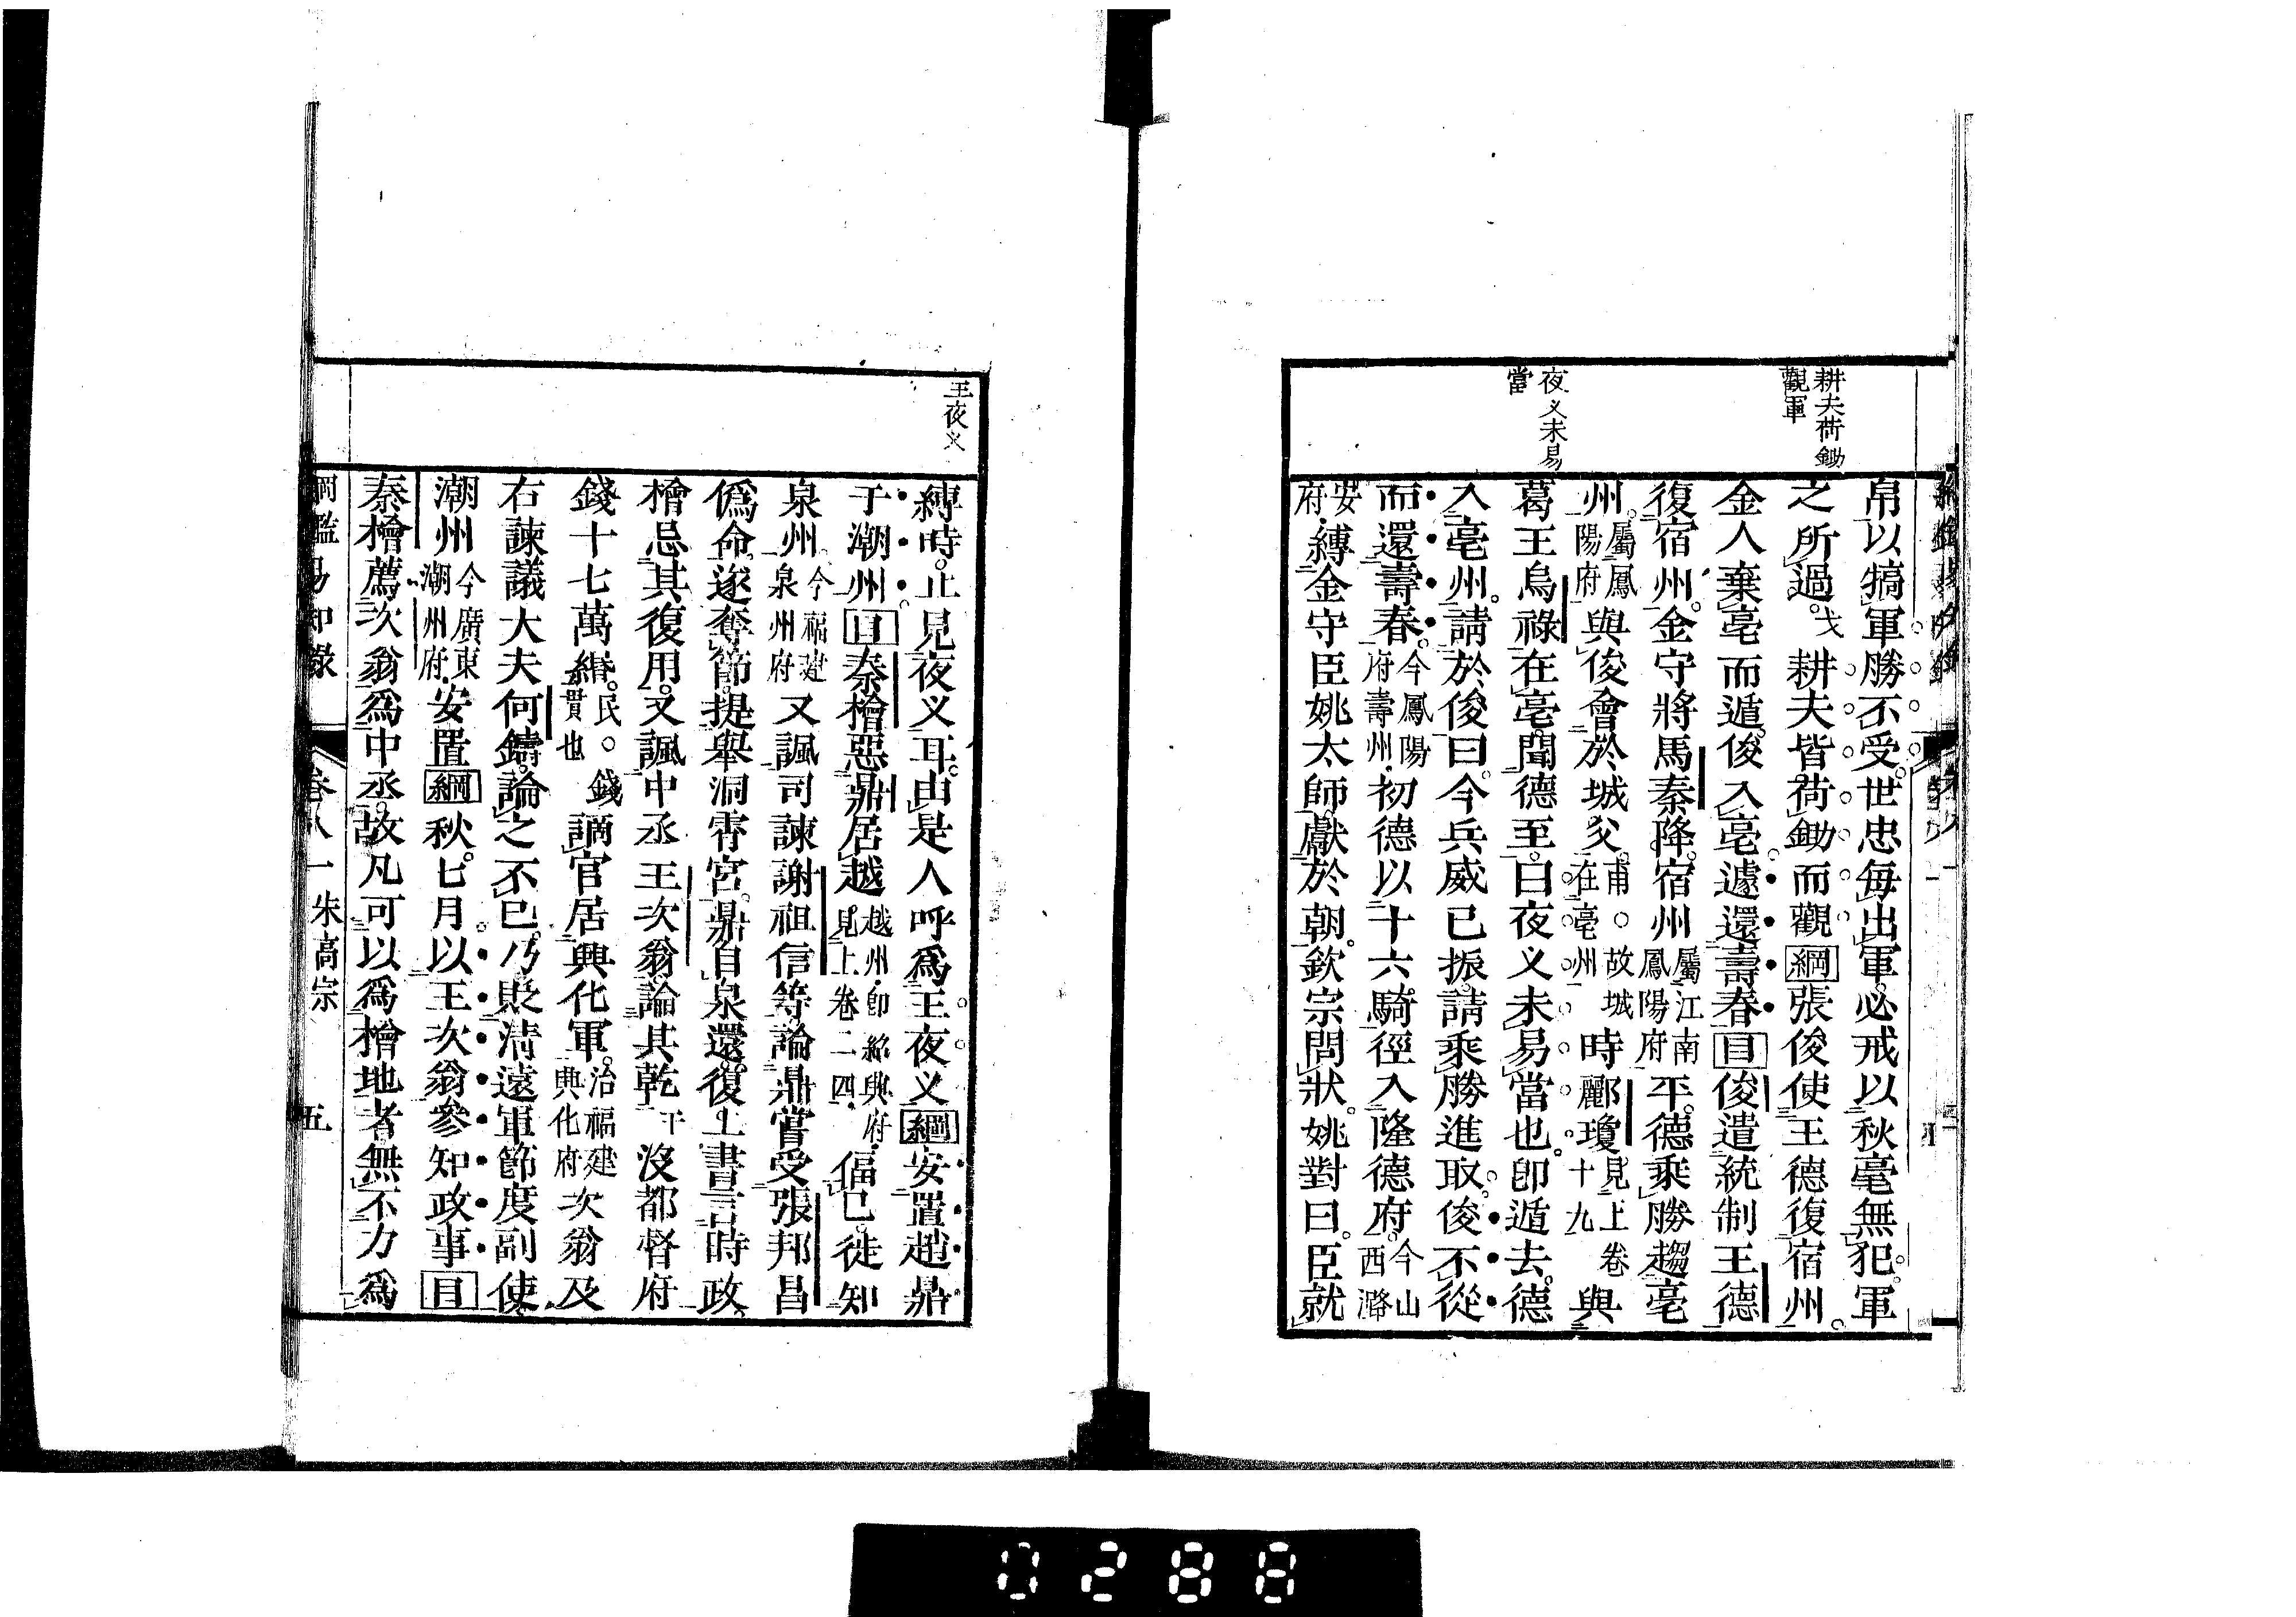 耕夫荷鋤
觀軍
夜叉未易
當
帛以犒軍勝不受世忠毎出軍必戒以秋毫無犯軍
之所過弋耕夫皆荷鋤而觀綱張俊使王德復宿州
金人棄亳而遁俊入亳遽還壽春目俊遣統制王德
復宿州金守將馬秦降宿州屬江南鳳陽府平德乘勝趨亳
州屬鳳陽府與俊會於城父甫○故城在亳州時酈瓊見上卷十九與
葛王烏祿在亳聞德至曰夜叉未易當也卽遁去德
入亳州請於俊曰今兵威已振請乘勝進取俊不從
而還壽春今鳳陽府壽州初德以十六騎徑入隆德府今山西潞
安府縛金守臣姚太師獻於朝欽宗問狀姚對曰臣就
王夜叉
縛時止見夜叉耳由是人呼爲王夜叉綱安置趙鼎
于潮州目秦檜惡鼎居越越州卽紹興府見上卷二四偪己徙知
泉州今福建泉州府又諷司諫謝祖信等論鼎嘗受張邦昌
僞命遂奪節提舉洞霄宮鼎自泉還復上書言時政
檜忌其復用又諷中丞王次翁論其乾干沒都督府
錢十七萬緡民○錢貫也謫官居興化軍治福建興化府次翁及
右諫議大夫何鑄論之不已乃貶淸遠軍節度副使
潮州今廣東潮州府安置綱秋七月以王次翁參知政事目
秦檜薦次翁爲中丞故凡可以爲檜地者無不力爲
綱鑑易知錄 卷八一 宋高宗 五